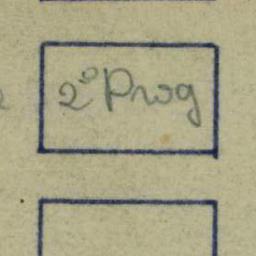 2º Prog